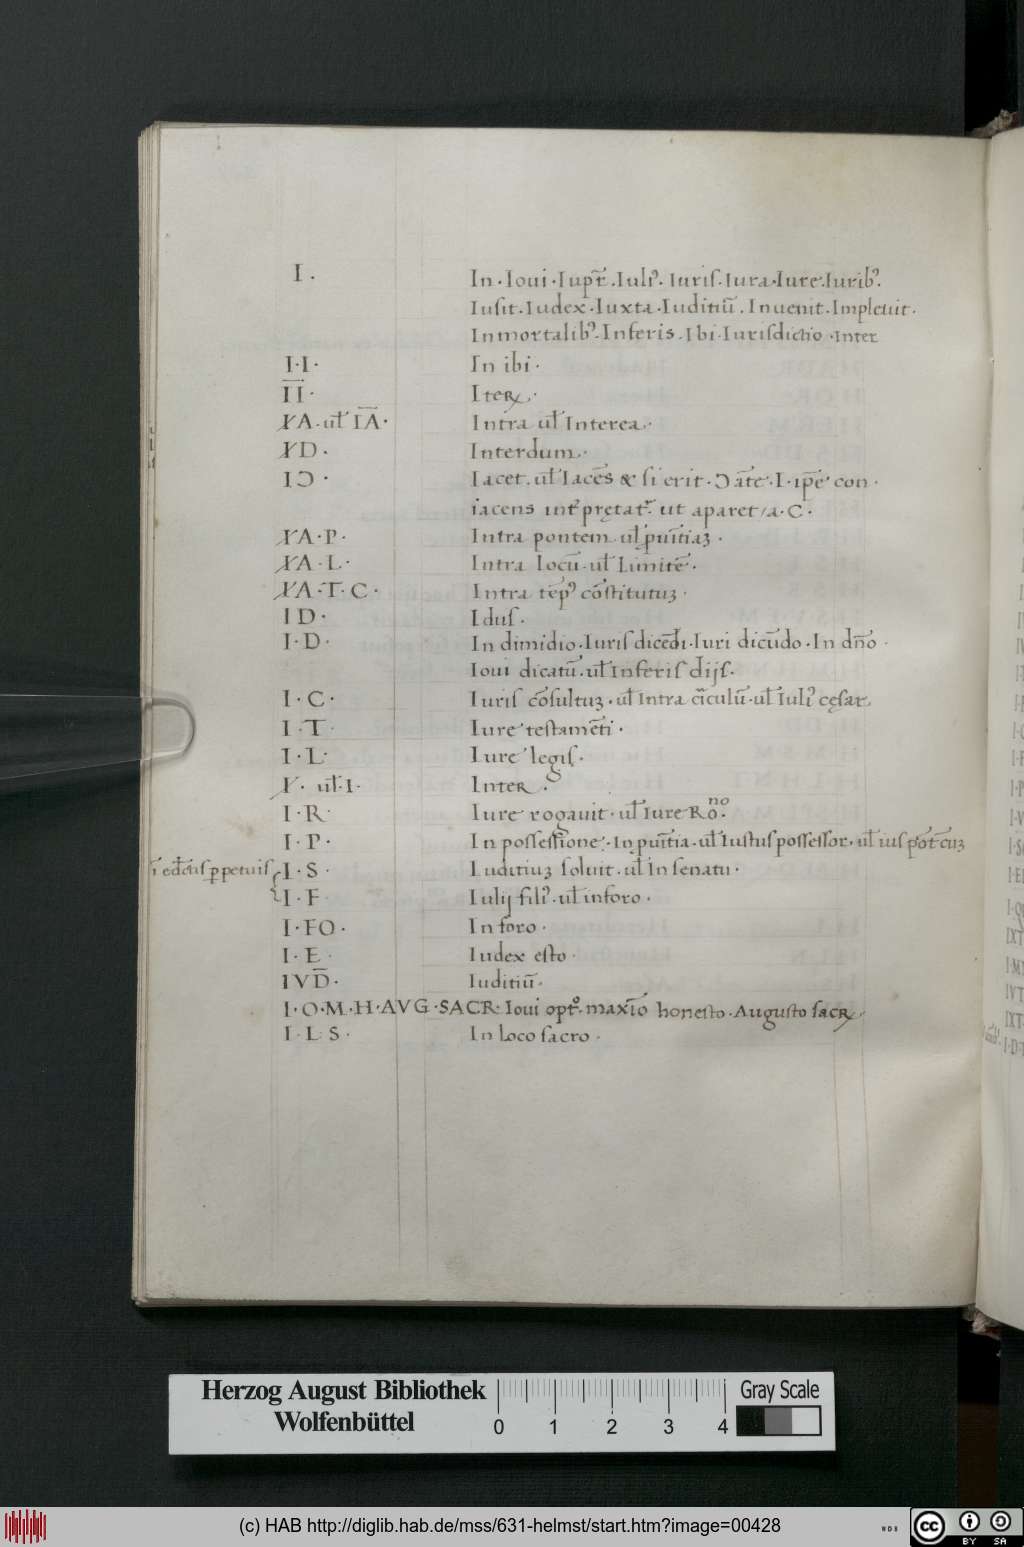 I · In · Ioui · Iupt̄ · Iuliꝰ · Iuris · Iura · Iure · Iuribꝰ ·
Iusit · Iudex · Iuxta · Iuditiū · Inuenit · Impleuit ·
Inmortalibꝰ · Inferis · Ibi · Iurisdictio · Inter
I · I · In ibi ·
I̅I̅ · Iteꝝ ·
A · ul̄ I̅A̅ · Intra ul̄ Interea ·
D · Interdum ·
IↃ · Iacet · ul̄ Iacēs & si erit · Ↄ āte · I · ip̄e con ·
iacens int̄prętat᷑ ut aparet / a · C ·
A · P · Intra pontem ul̄ ꝓuītiaꝫ ·
A · L · Intra locū · ul̄ Limitē ·
A · T · C · Intra tēpꝰ cōstitutuꝫ ·
ID · Idus ·
I · D · In dimidio · Iuris dicēdi · Iuri dicūdo · In dn̄o ·
Ioui dicatū · ul̄ Inferis dijs ·
I · C · Iuris cōsultuꝫ · ul̄ Intra cīculū · ul̄ Iuliꝰ cęsar
I · T · Iure testamēti ·
I · L · Iure legis ·
ul̄ · I · Inter ·
I · R · Iure rogauit · ul̄ Iure Roⁿᵒ ·
I · P · In possessione · In ꝓuītia · ul̄ Iustus possessor · ul̄
ī edc̄tis ꝑpetuis I · S · Iuditiuꝫ soluit · ul̄ In senatu ·
I · F · Iulij filiꝰ · ul̄ inforo ·
I · FO · In foro ·
I · E · Iudex esto ·
IVD̅ · Iuditiū ·
I · O · M · H · AVG · SACR · Ioui optᵒ · maxīo honesto · Augusto sacꝝ ·
I · L · S · In loco sacro ·
Herzog August Bibliothek
Wolfenbüttel
0 1 2 3 4
Gray Scale
(c) HAB http://diglib.hab.de/mss/631-helmst/start.htm?image=00428
WDB
cc BY SA